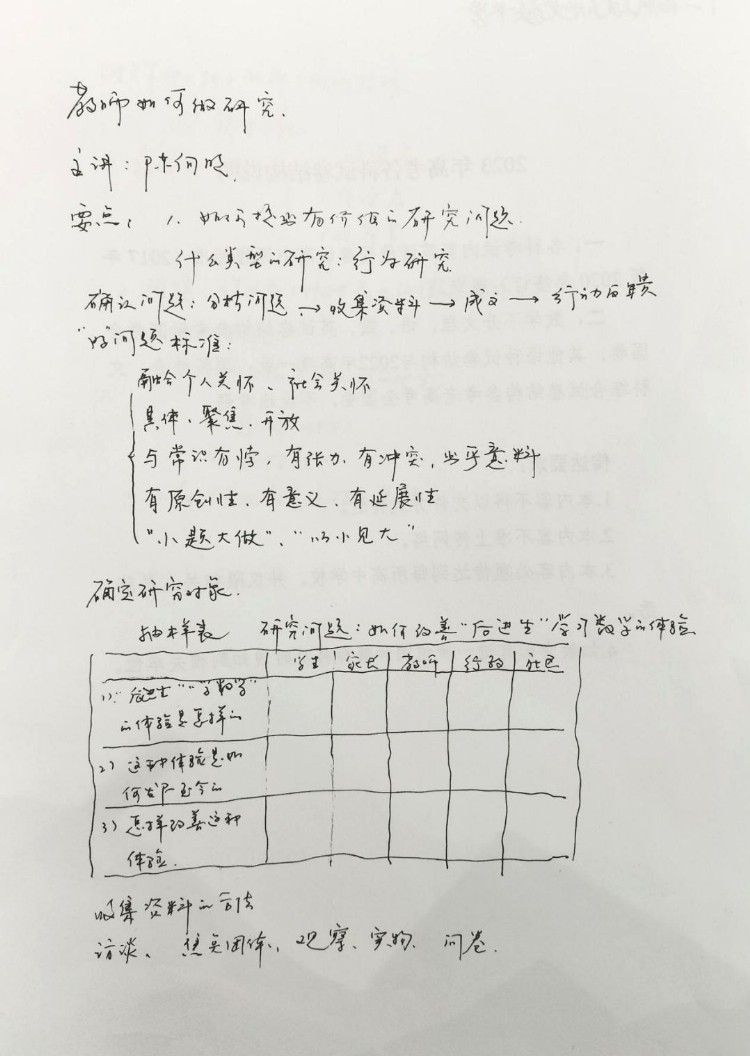 教师如何做研究.
主讲:陈向明.
要点: 1. 如何提出有价值的研究问题.
什么类型的研究:行为研究
确认问题:分析问题→收集资料→成文→行动反馈
"好"问题标准:
融合个人关怀、社会关怀
具体、聚焦、开放
与常识有悖,有张力、有冲突,出乎意料
有原创性、有意义、有延展性
"小题大做"、"以小见大"
确定研究对象.
抽样表 研究问题:如何改善"后进生"学习数学的体验
学生 家长 教师 行政 社区
1)."后进生"学数学
的体验是怎样的
2) 这种体验是如
何发展至今的
3) 怎样改善这种
体验.
收集资料的方法
访谈、焦点团体、观察、实物、问卷.